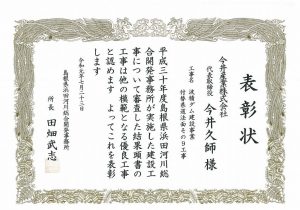 表彰状
今井産業株式会社
代表取締役 今井久師様
工事名 波積ダム建設事業
付替県道法面その9工事
平成三十年度島根県浜田河川総
合開発事務所が実施した建設工
事について審査した結果頭書の
工事は他の模範となる優良工事
と認めます よってこれを表彰
します
令和元年七月二十三日
島根県浜田河川総合開発事務所
所長 田畑武志